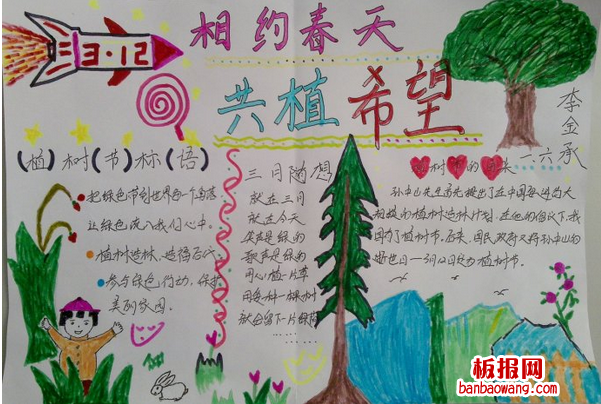 3·12
相约春天
共植希望
李金承
一.六
(植)树(节)标(语)
把绿色带到世界每一个角落
让绿色成入我们心中。
植树造林，造福后代
参与绿色行动，保护
美丽家园。
三月随想
就在三月
就在今天
笑声是绿的
歌声是绿的
用心植一片草
用爱种一棵树
就会留下一片绿荫
......
树节的由来
孙中山先生首先提出了在中国
植树造林计划
植树节。后来，国民政府又将孙中山的
逝世日三月12日定为植树节。
板报网
banbaowang.com